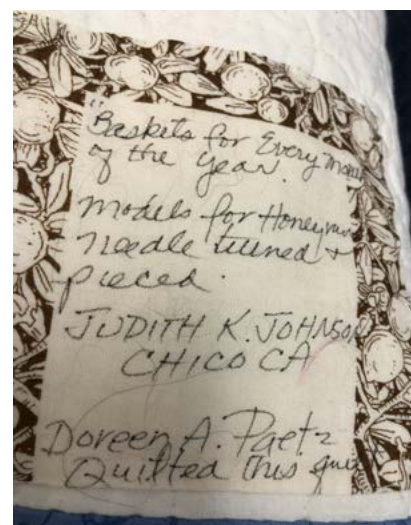 "Baskets for Every Month
of the Year.
Models for Honeymoon
needle turned +
pieced.
JUDITH K. JOHNSON
CHICO CA
Doreen A. Paetz
Quilted this quilt